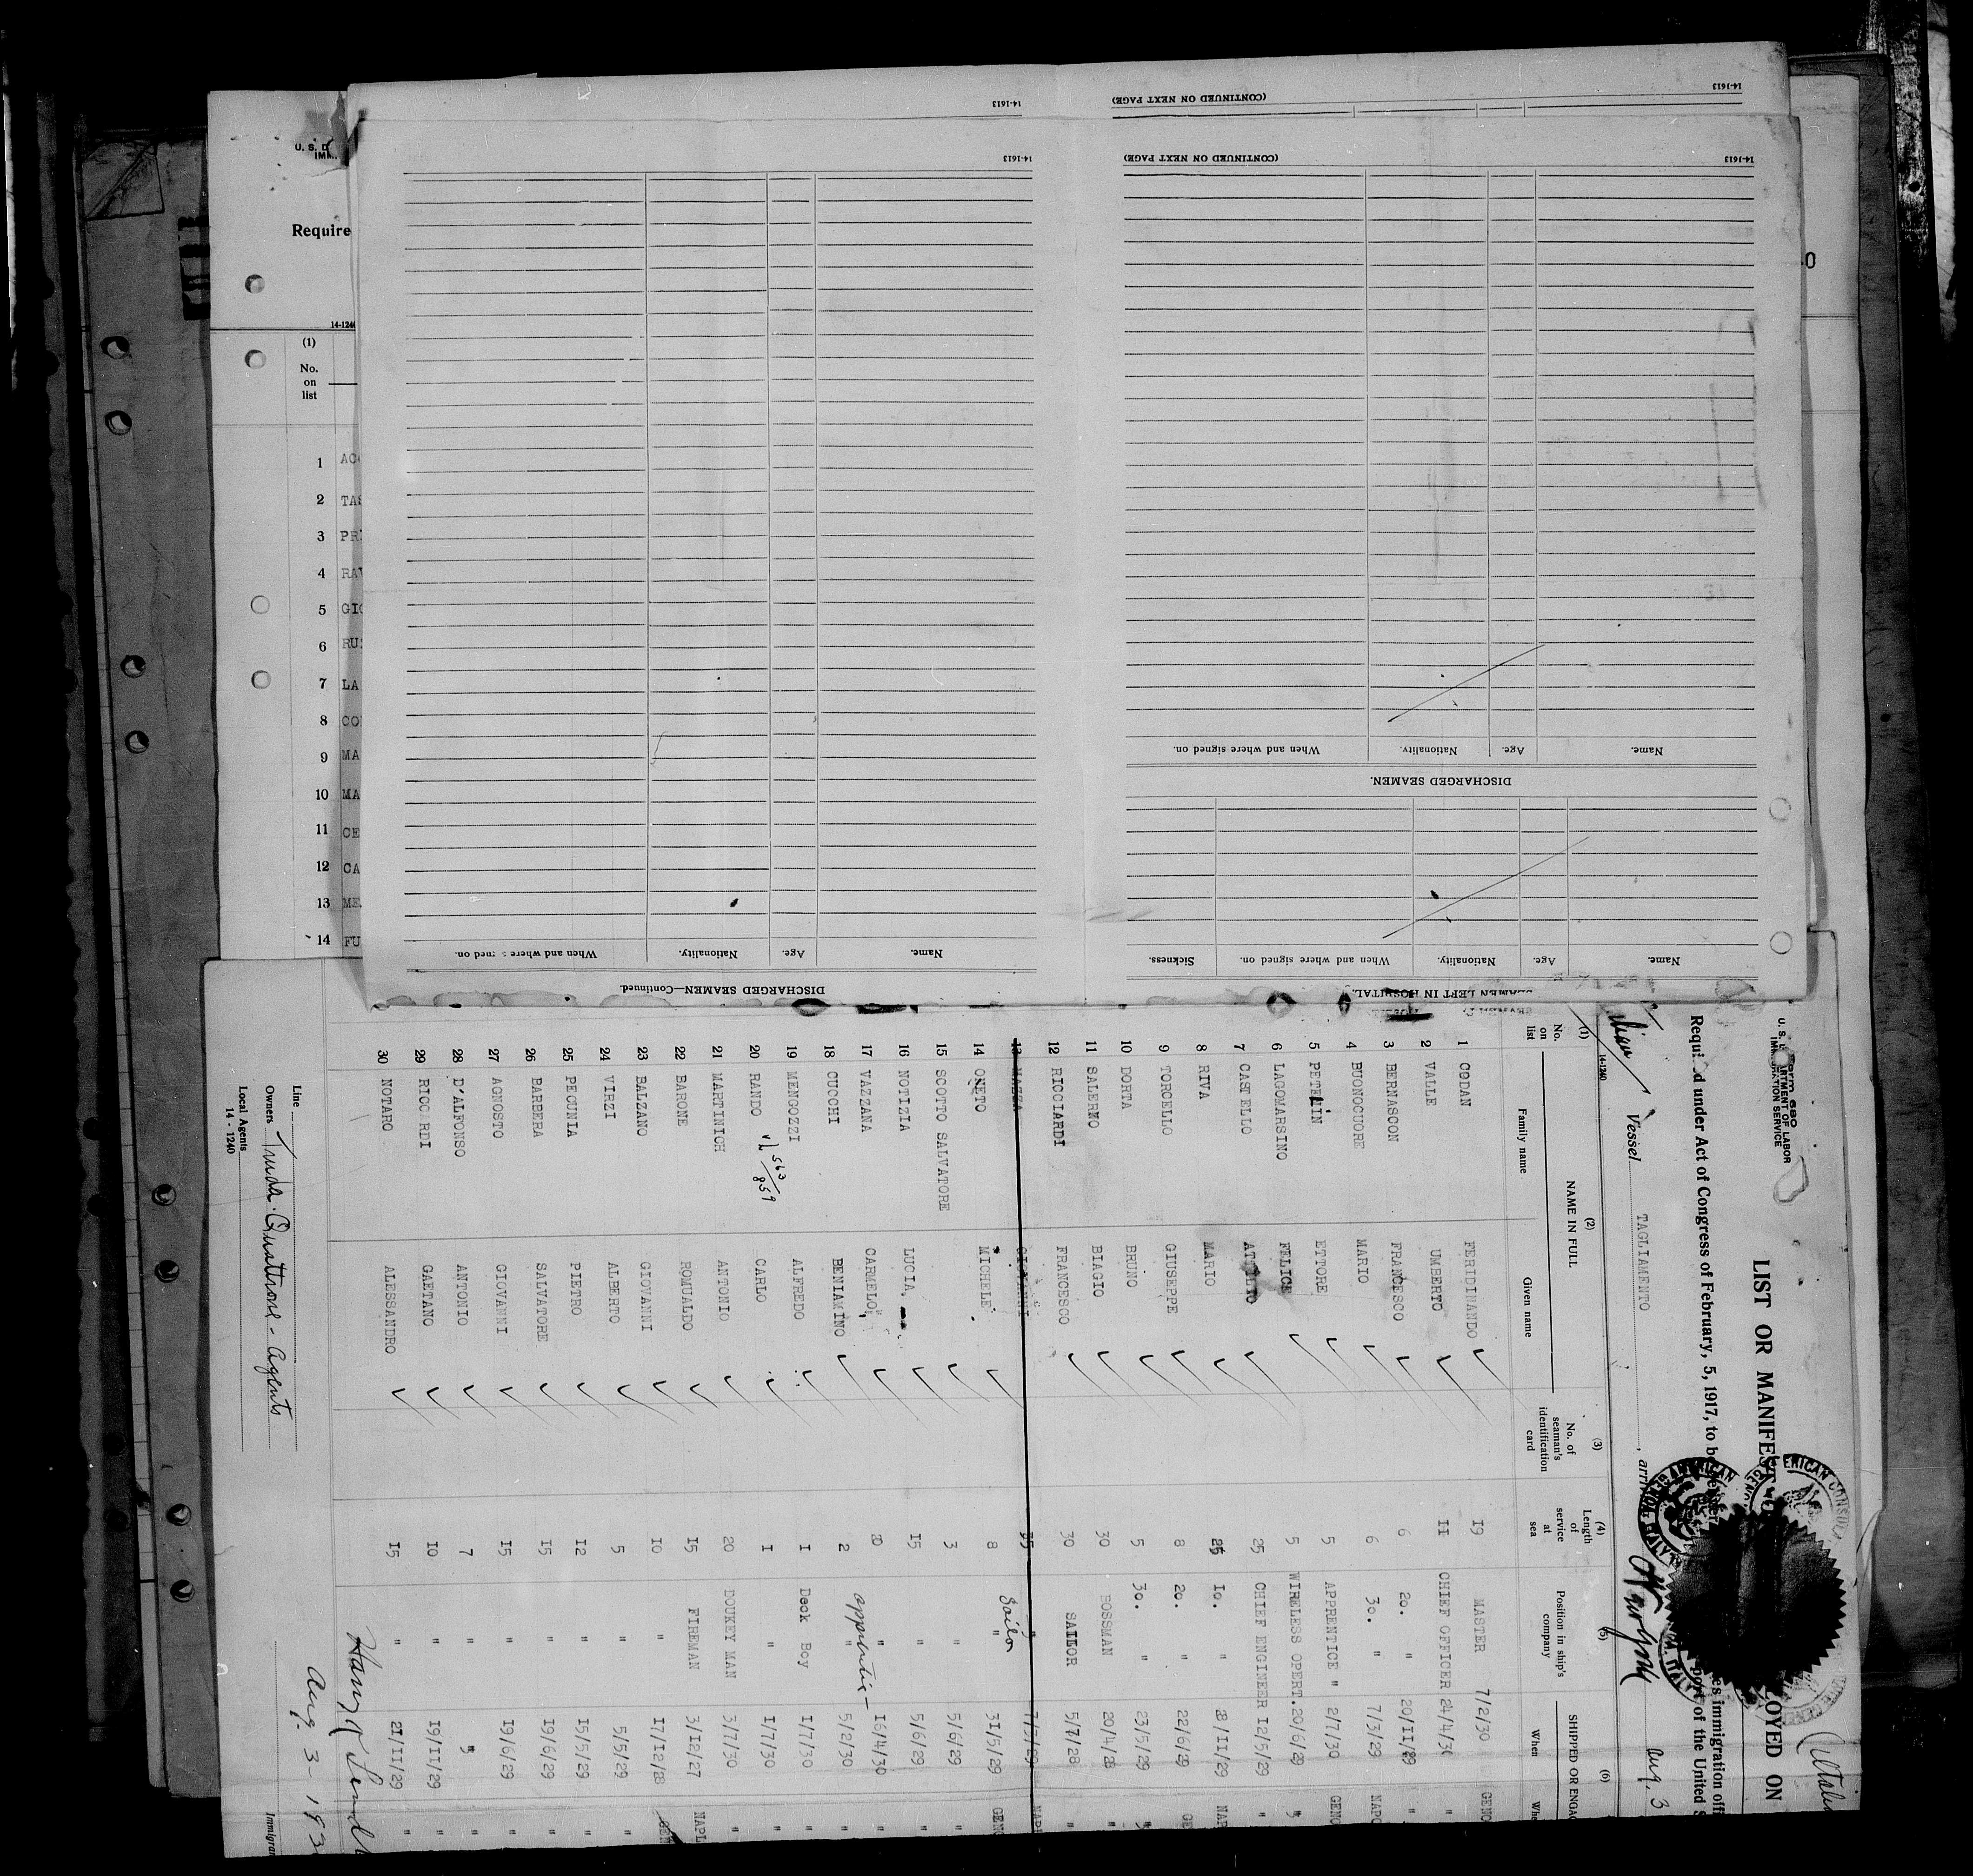 14-1613
(CONTINUED ON NEXT PAGE)
14-1613
14-1613
(CONTINUED ON NEXT PAGE)
14-1613
U. S. D
IMM.
Require
14-1240
(1)
No.
on
list
1 AC
2 TAS
3 PR
4 RA
5 GIO
6 RU
7 LA
8 CO
9 MA
10 MA
11 CE
12 CA
13 ME
14 FU
SEAMEN LEFT IN HOSPITAL.
Name. Age. Nationality. When and where signed on. Sickness.
DISCHARGED SEAMEN.
Name. Age. Nationality. When and where signed on.
DISCHARGED SEAMEN—Continued.
Name. Age. Nationality. When and where signed on.
Form 680
U. S. DEPARTMENT OF LABOR
IMMIGRATION SERVICE
LIST OR MANIFEST OYED ON
Required under Act of Congress of February, 5, 1917, to be es immigration off
port of the United S
Vessel TAGLIAMENTO, arri New York Aug. 3
14-1240
(1) (2) (3) (4) (5) (6)
No. on list
NAME IN FULL
Family name Given name
No. of seaman's identification card
Length of service at sea
Position in ship's company
SHIPPED OR ENGAG
When Whe
1 CODAN FERIDINANDO 19 MASTER 7/2/30 GENO
2 VALLE UMBERTO II CHIEF OFFICER 24/4/30 "
3 BERNASCON FRANCESCO 6 20. " 20/II/29 "
4 BUONOCUORE MARIO 6 30. " 7/3/29 NAPO
5 PETRIN ETTORE 5 APPRENTICE " 2/7/30 GENO
6 LAGOMARSINO FELICE 5 WIRELESS OPERT. 29/6/29 "
7 CASTELLO ATTILIO 25 CHIEF ENGINEER I2/5/29 "
8 RIVA MARIO 25 I0. " 28/II/29 NAP
9 TORCELLO GIUSEPPE 8 20. " 22/6/29 GE
10 DORTA BRUNO 5 30. " 23/5/29 "
11 SALERNO BIAGIO 30 BOSSMAN 20/4/28 "
12 RICCIARDI FRANCESCO 30 SAILOR 5/7/28 "
13 MAZZA GIOVANNI 35 " 7/3/29 NAP
14 ONETO MICHELE 8 Sailor " 31/5/29 GENO
15 SCOTTO SALVATORE 3 " 5/6/29 "
16 NOTIZIA LUCIA 15 " 5/6/29 "
17 VAZZANA CARMELO 20 " I6/4/30 "
18 CUCCHI BENIAMINO 2 apprentice " 5/2/30 "
19 MENGOZZI ALFREDO I Deck Boy I/7/30 "
20 RANDO 563/859 CARLO I " I/7/30 "
21 MARTINICH ANTONIO 20 DOUKEY MAN 3/7/30 "
22 BARONE ROMUALDO 15 FIREMAN 3/I2/27 NAPL
23 BALZANO GIOVANNI 10 " I7/I2/28 GEN
24 VIRZI ALBERTO 5 " 5/5/29 "
25 PECUNIA PIETRO 12 " I5/5/29 "
26 BARBERA SALVATORE 15 " I9/6/29 "
27 AGNOSTO GIOVANNI 15 " I9/6/29 "
28 D'ALFONSO ANTONIO 7 " " "
29 RICCARDI GAETANO 10 " I9/II/29 "
30 NOTARO ALESSANDRO 15 " 2I/II/29 "
Line
Owners Truda Quattrone - Agents
Local Agents
14-1240
Aug. 3 - 193
Immigran